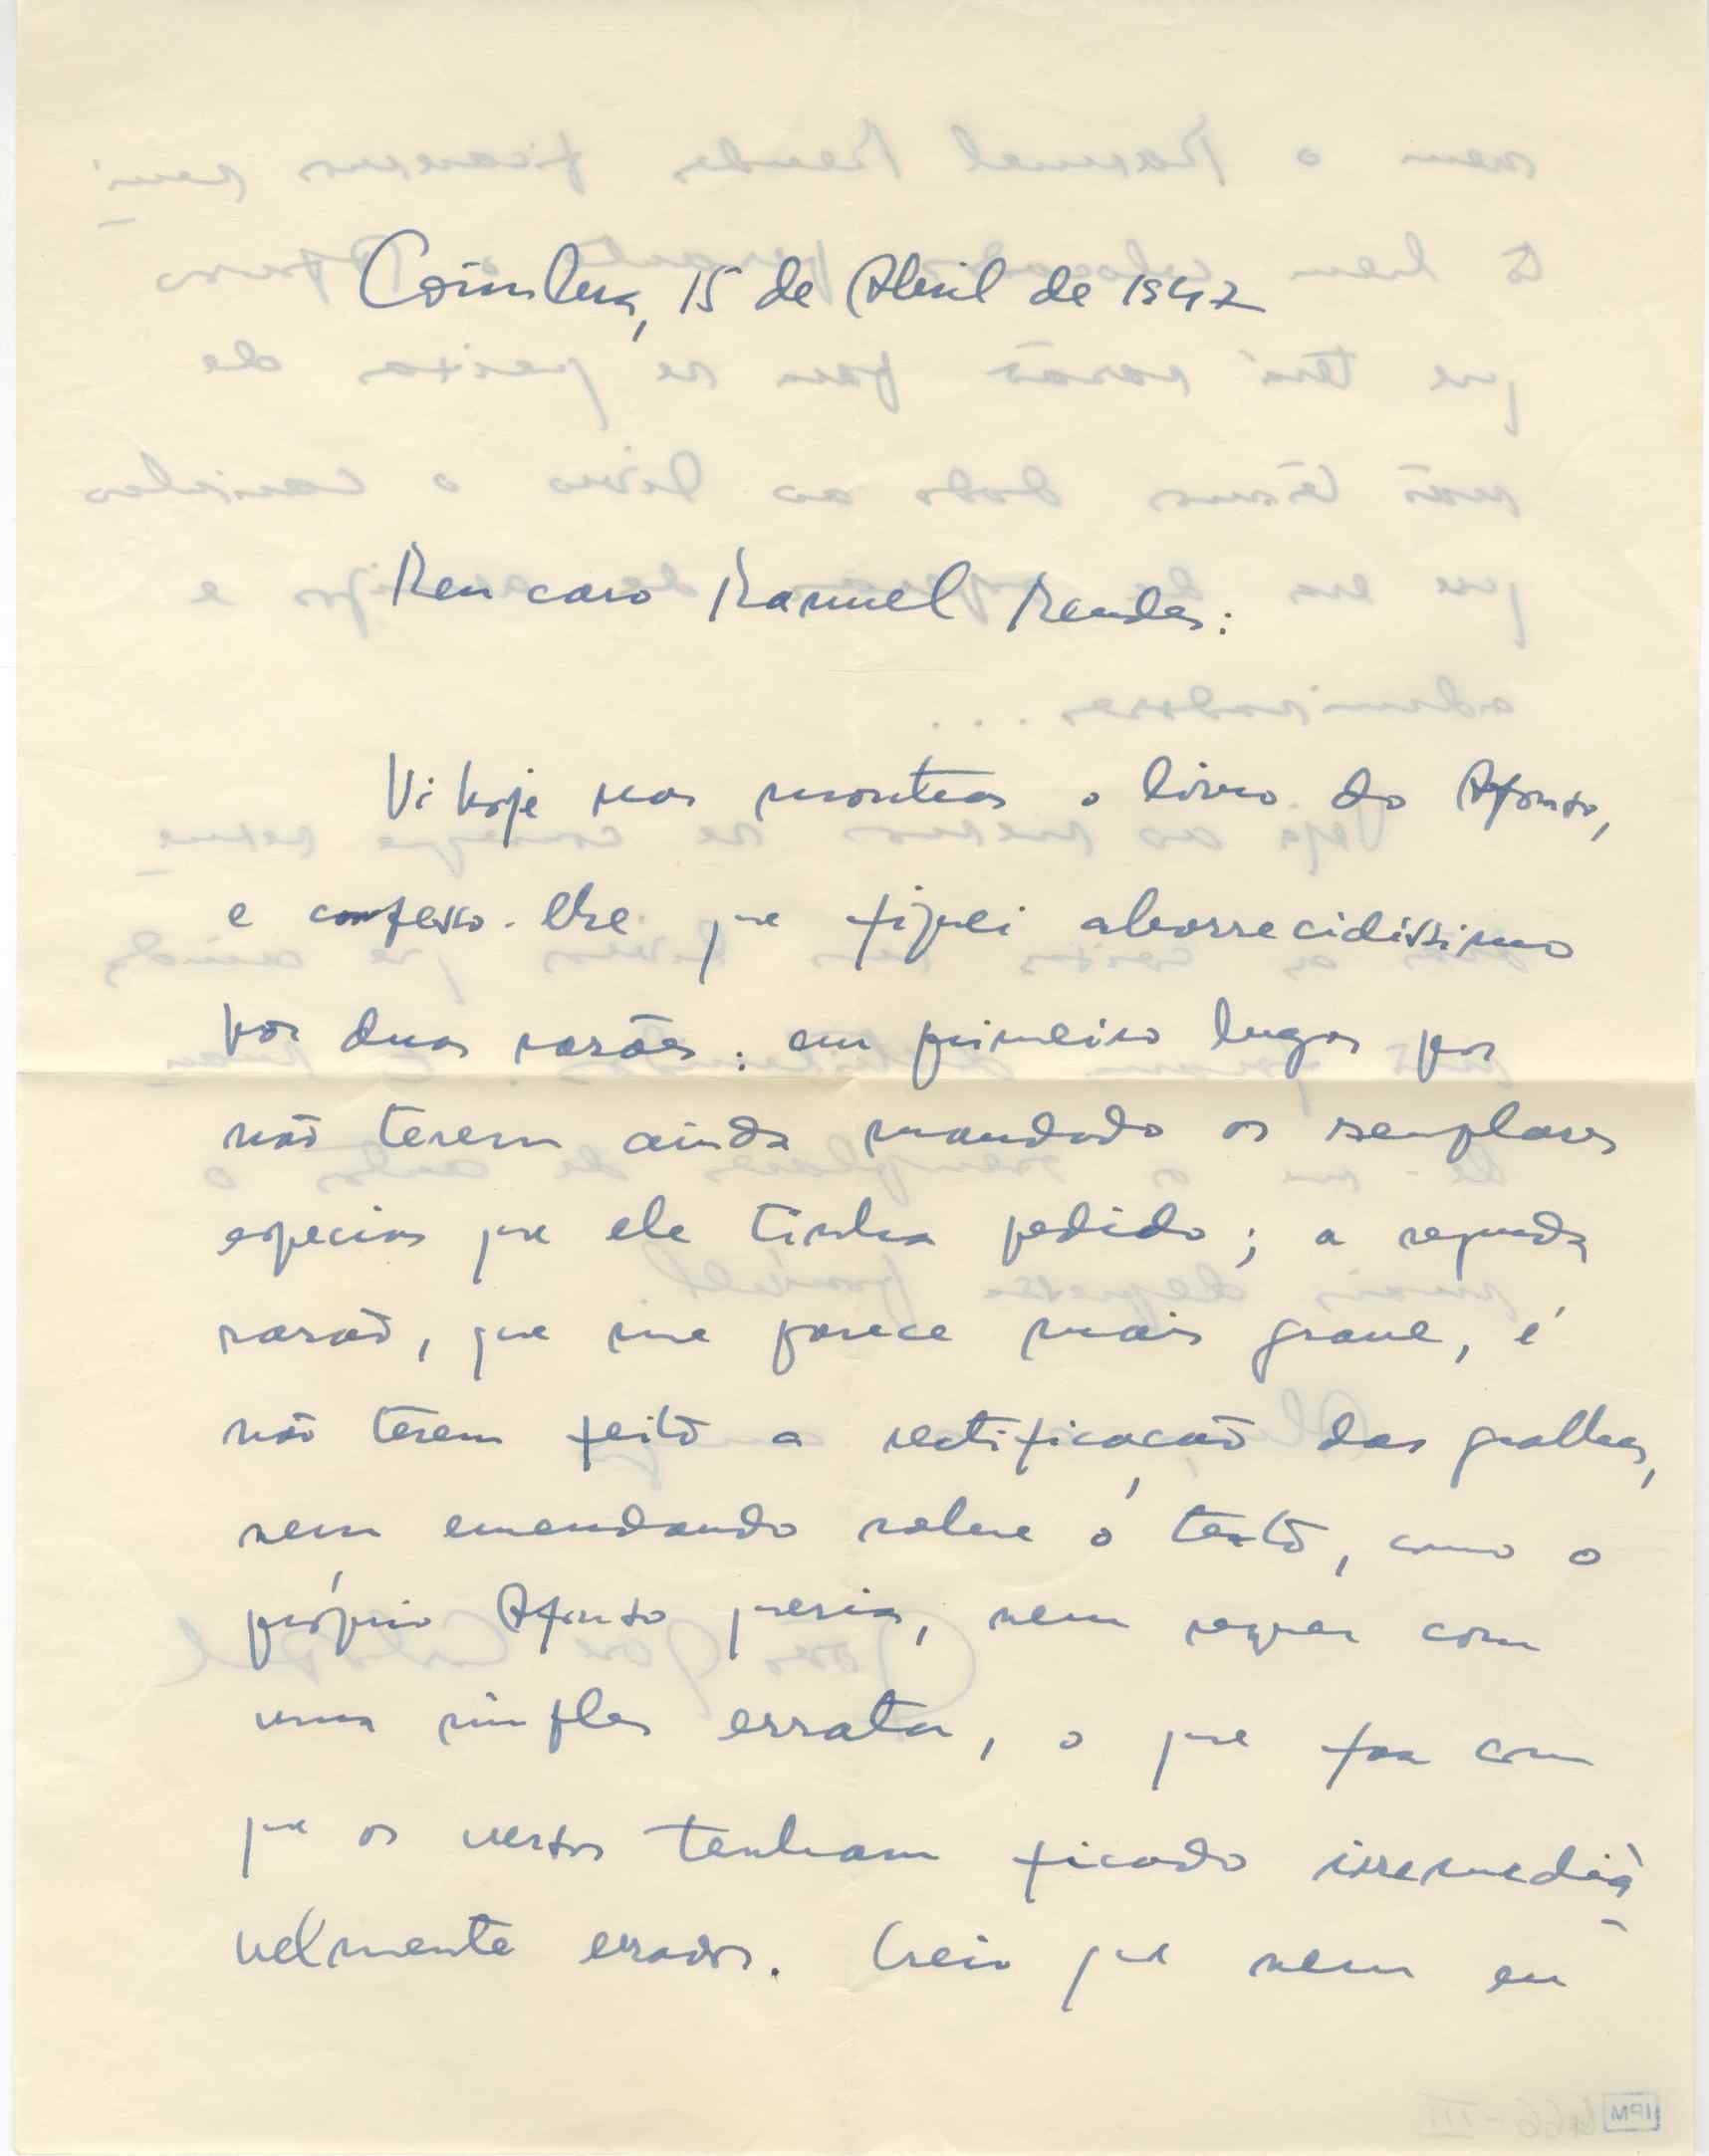 Coimbra, 15 de Abril de 1947
Meu caro Manuel Mendes:
Vi hoje nas montras o livro do Afonso,
e confesso-lhe que fiquei aborrecidíssimo
por duas razões: em primeiro lugar por
não terem ainda mandado os exemplares
especiais que ele tinha pedido; a segunda
razão, que me parece mais grave, é
não terem feito a rectificação das gralhas,
nem emendando sobre o texto, como o
próprio Afonso queria, nem sequer com
uma simples errata, o que faz com
que os versos tenham ficado irremedià
velmente errados. Creio que nem eu